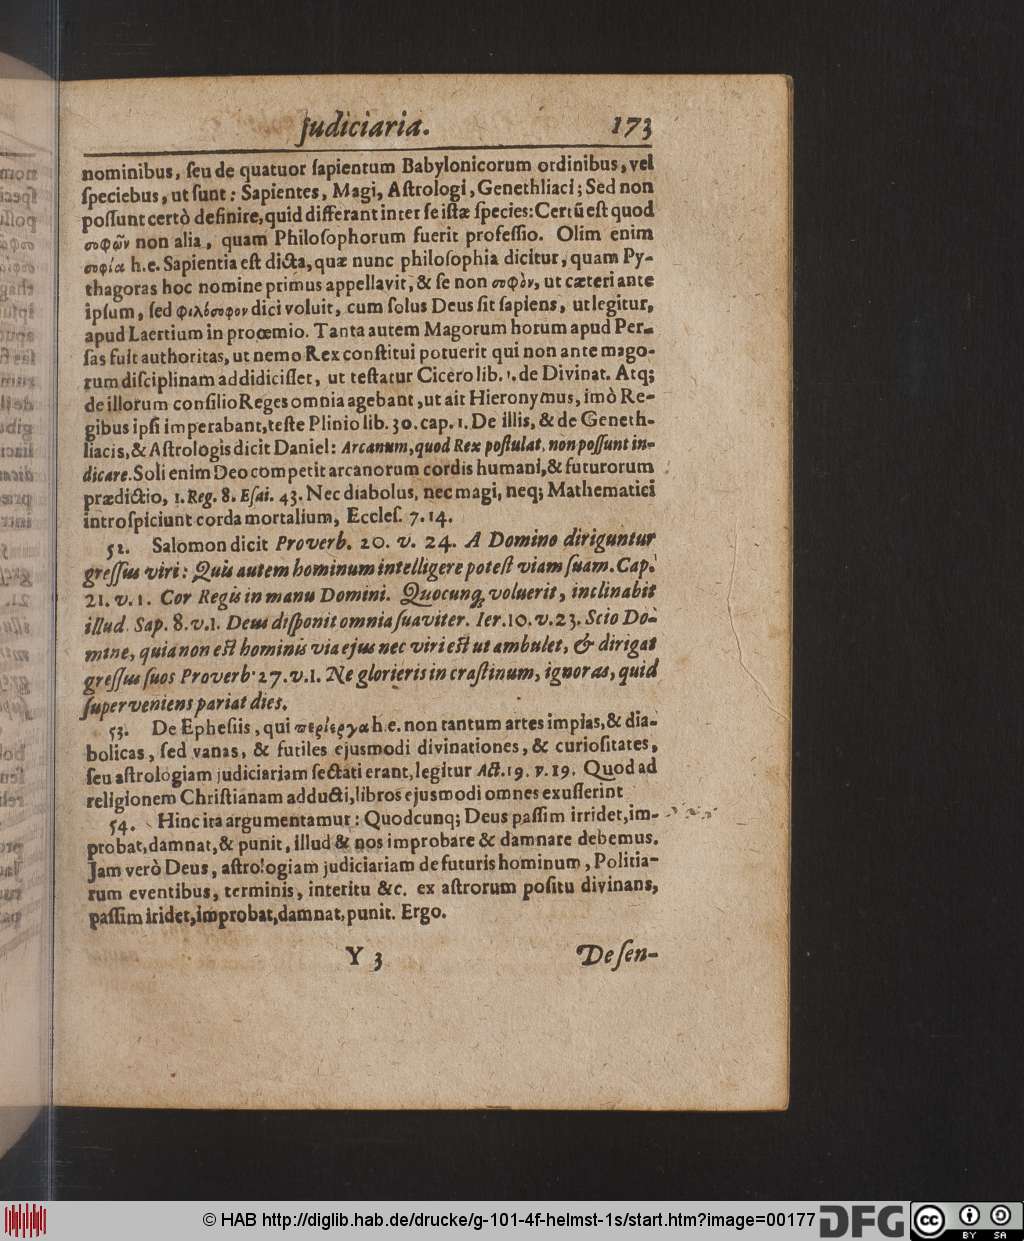 judiciaria. 173
nominibus, ſeu de quatuor ſapientum Babylonicorum ordinibus, vel
ſpeciebus, ut ſunt: Sapientes, Magi, Aſtrologi, Genethliaci; Sed non
poſſunt certò definire, quid differant inter ſe iſtæ ſpecies: Certũ eſt quod
σοφῶν non alia, quam Philoſophorum fuerit profeſſio. Olim enim
σοφία h.e. Sapientia eſt dicta, quæ nunc philoſophia dicitur, quam Py-
thagoras hoc nomine primus appellavit, & ſe non σοφὸν, ut cæteri ante
ipſum, ſed φιλόσοφον dici voluit, cum ſolus Deus ſit ſapiens, ut legitur,
apud Laertium in proœmio. Tanta autem Magorum horum apud Per-
ſas fuit authoritas, ut nemo Rex conſtitui potuerit qui non ante mago-
rum diſciplinam addidiciſſet, ut teſtatur Cicero lib. 1. de Divinat. Atq;
de illorum conſilio Reges omnia agebant, ut ait Hieronymus, imò Re-
gibus ipſi imperabant, teſte Plinio lib. 30. cap. 1. De illis, & de Geneth-
liacis, & Aſtrologis dicit Daniel: Arcanum, quod Rex poſtulat, non poſſunt in-
dicare. Soli enim Deo competit arcanorum cordis humani, & futurorum
prædictio, 1. Reg. 8. Eſai. 43. Nec diabolus, nec magi, neq; Mathematici
introſpiciunt corda mortalium, Eccleſ. 7. 14.
52. Salomon dicit Proverb. 20. v. 24. A Domino diriguntur
greſſus viri: Quis autem hominum intelligere poteſt viam ſuam. Cap.
21. v. 1. Cor Regis in manu Domini. Quocunq, voluerit, inclinabit
illud. Sap. 8. v. 1. Deus diſponit omnia ſuaviter. Ier. 10. v. 23. Scio Do-
mine, quia non eſt hominis via ejus nec viri eſt ut ambulet, & dirigat
greſſus ſuos Proverb. 27. v. 1. Ne glorieris in craſtinum, ignoras, quid
ſuperveniens pariat dies.
53. De Epheſiis, qui περίεργα h.e. non tantum artes impias, & dia-
bolicas, ſed vanas, & futiles ejusmodi divinationes, & curioſitates,
ſeu aſtrologiam judiciariam ſectati erant, legitur Act. 19. v. 19. Quod ad
religionem Chriſtianam adducti, libros ejusmodi omnes exuſſerint
54. Hinc ita argumentamur: Quodcunq; Deus paſſim irridet, im-
probat, damnat, & punit, illud & nos improbare & damnare debemus.
Jam verò Deus, aſtrologiam judiciariam de futuris hominum, Politia-
rum eventibus, terminis, interitu &c. ex aſtrorum poſitu divinans,
paſſim iridet, improbat, damnat, punit. Ergo.
Y 3 Deſen-
© HAB http://diglib.hab.de/drucke/g-101-4f-helmst-1s/start.htm?image=00177 DFG cc BY SA